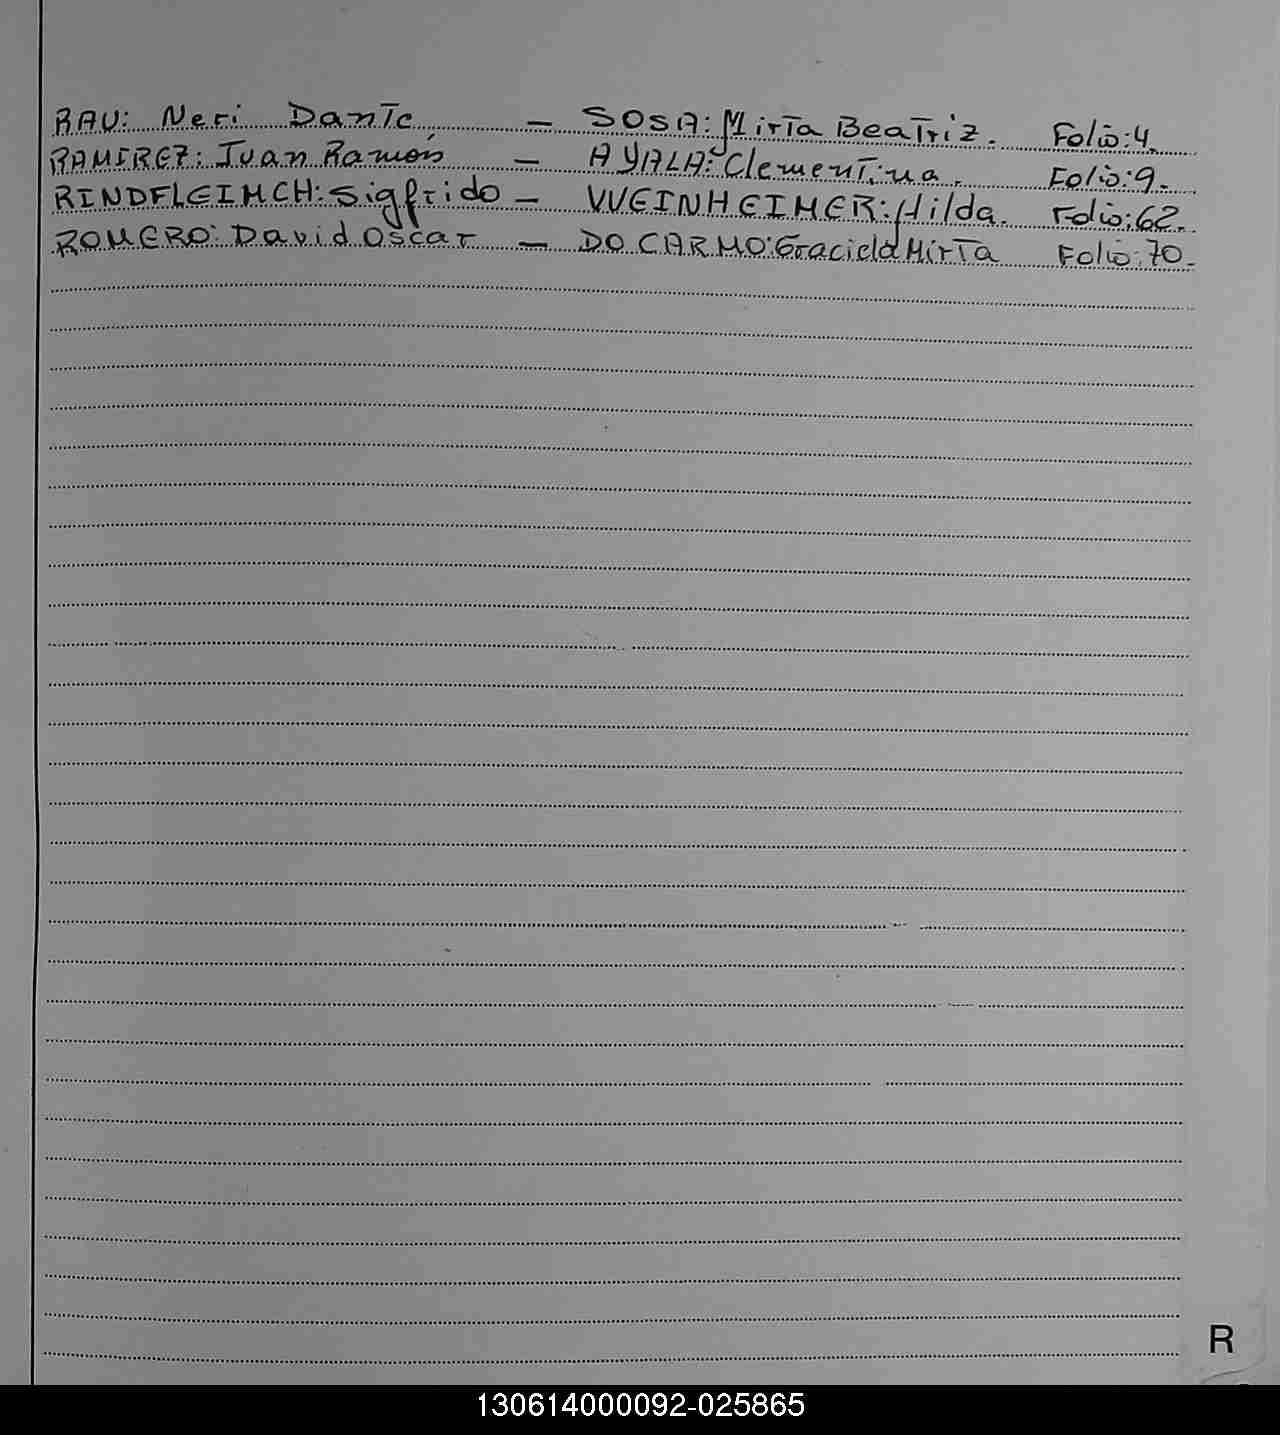 RAU: Neri Dante — SOSA: Mirta Beatriz. Folio: 4.
RAMIREZ: Juan Ramón — AYALA: Clementina. Folio: 9.
RINDFLEIMCH: Sigfrido — WEINHEIMER: Hilda. Folio: 62.
ROMERO: David Oscar — DO CARMO: Graciela Mirta Folio: 70.
R
130614000092-025865